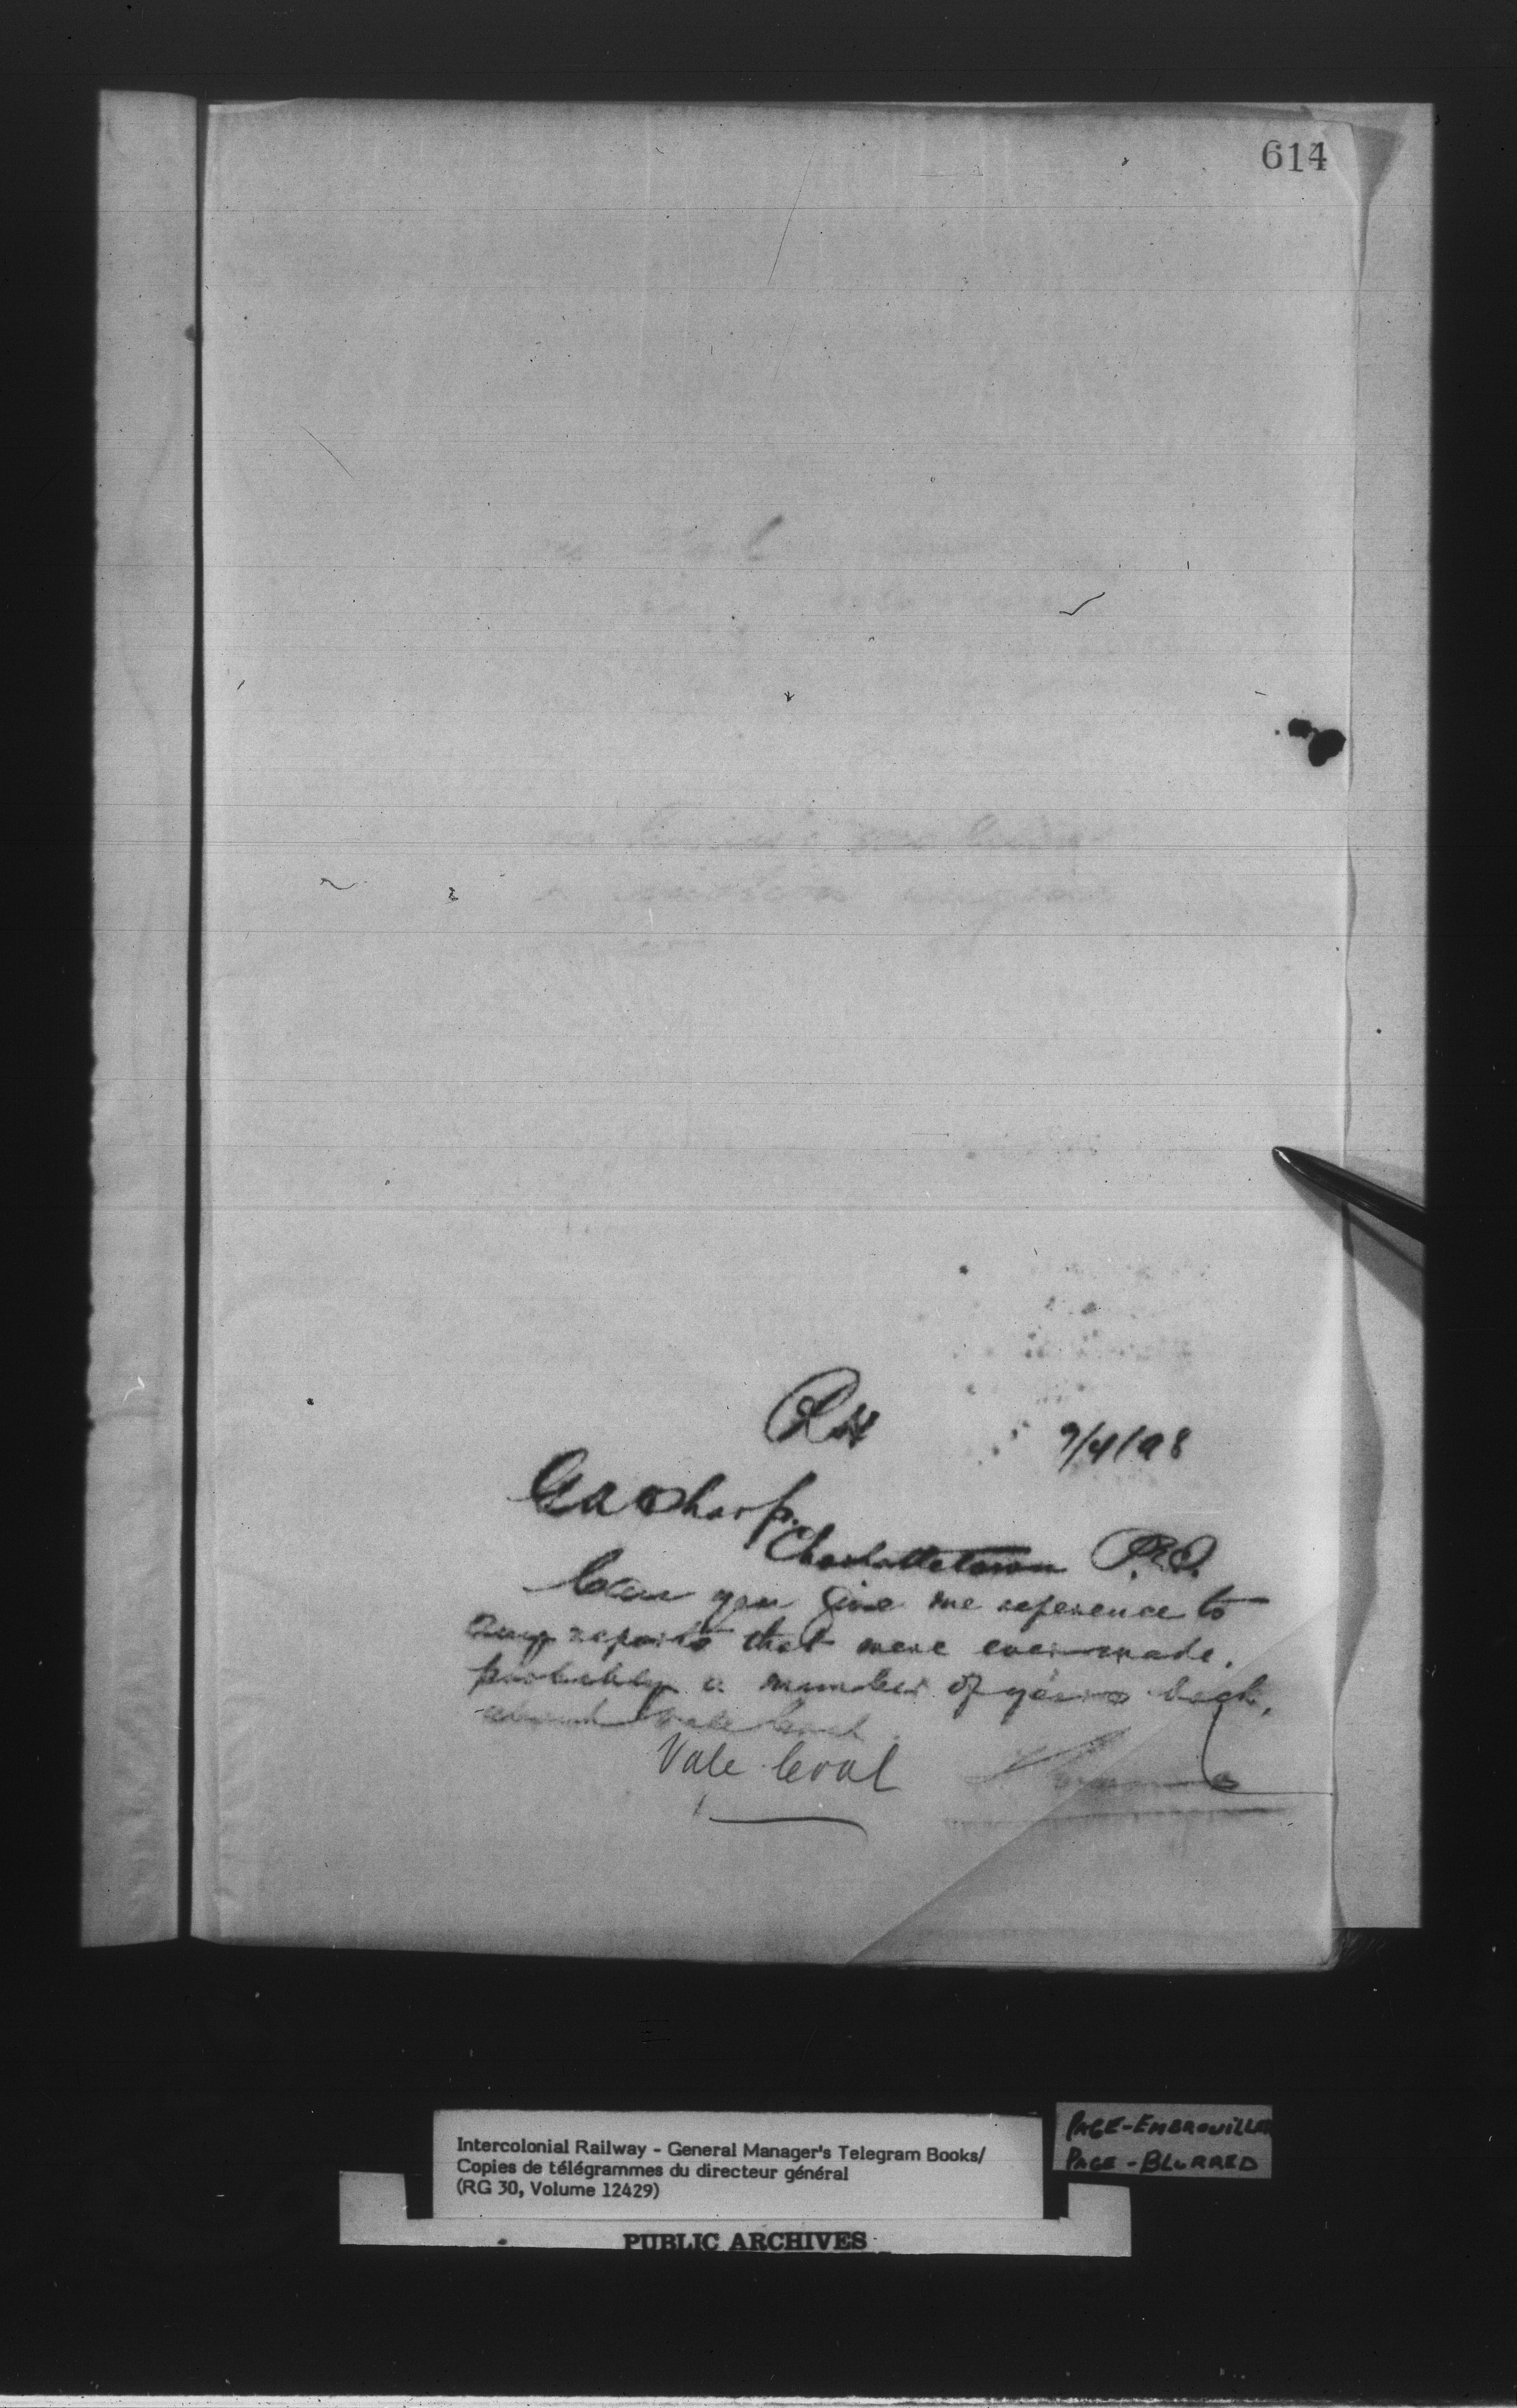 614
9/4/98
G A Sharp.
Charlottetown P.E.I.
Can you give me reference to
any reports that were ever made,
probably a number of years back,
about Vale Coal
Vale Coal
Intercolonial Railway - General Manager's Telegram Books/
Copies de télégrammes du directeur général
(RG 30, Volume 12429)
PAGE-EMBROUILLER
PAGE-BLURRED
PUBLIC ARCHIVES